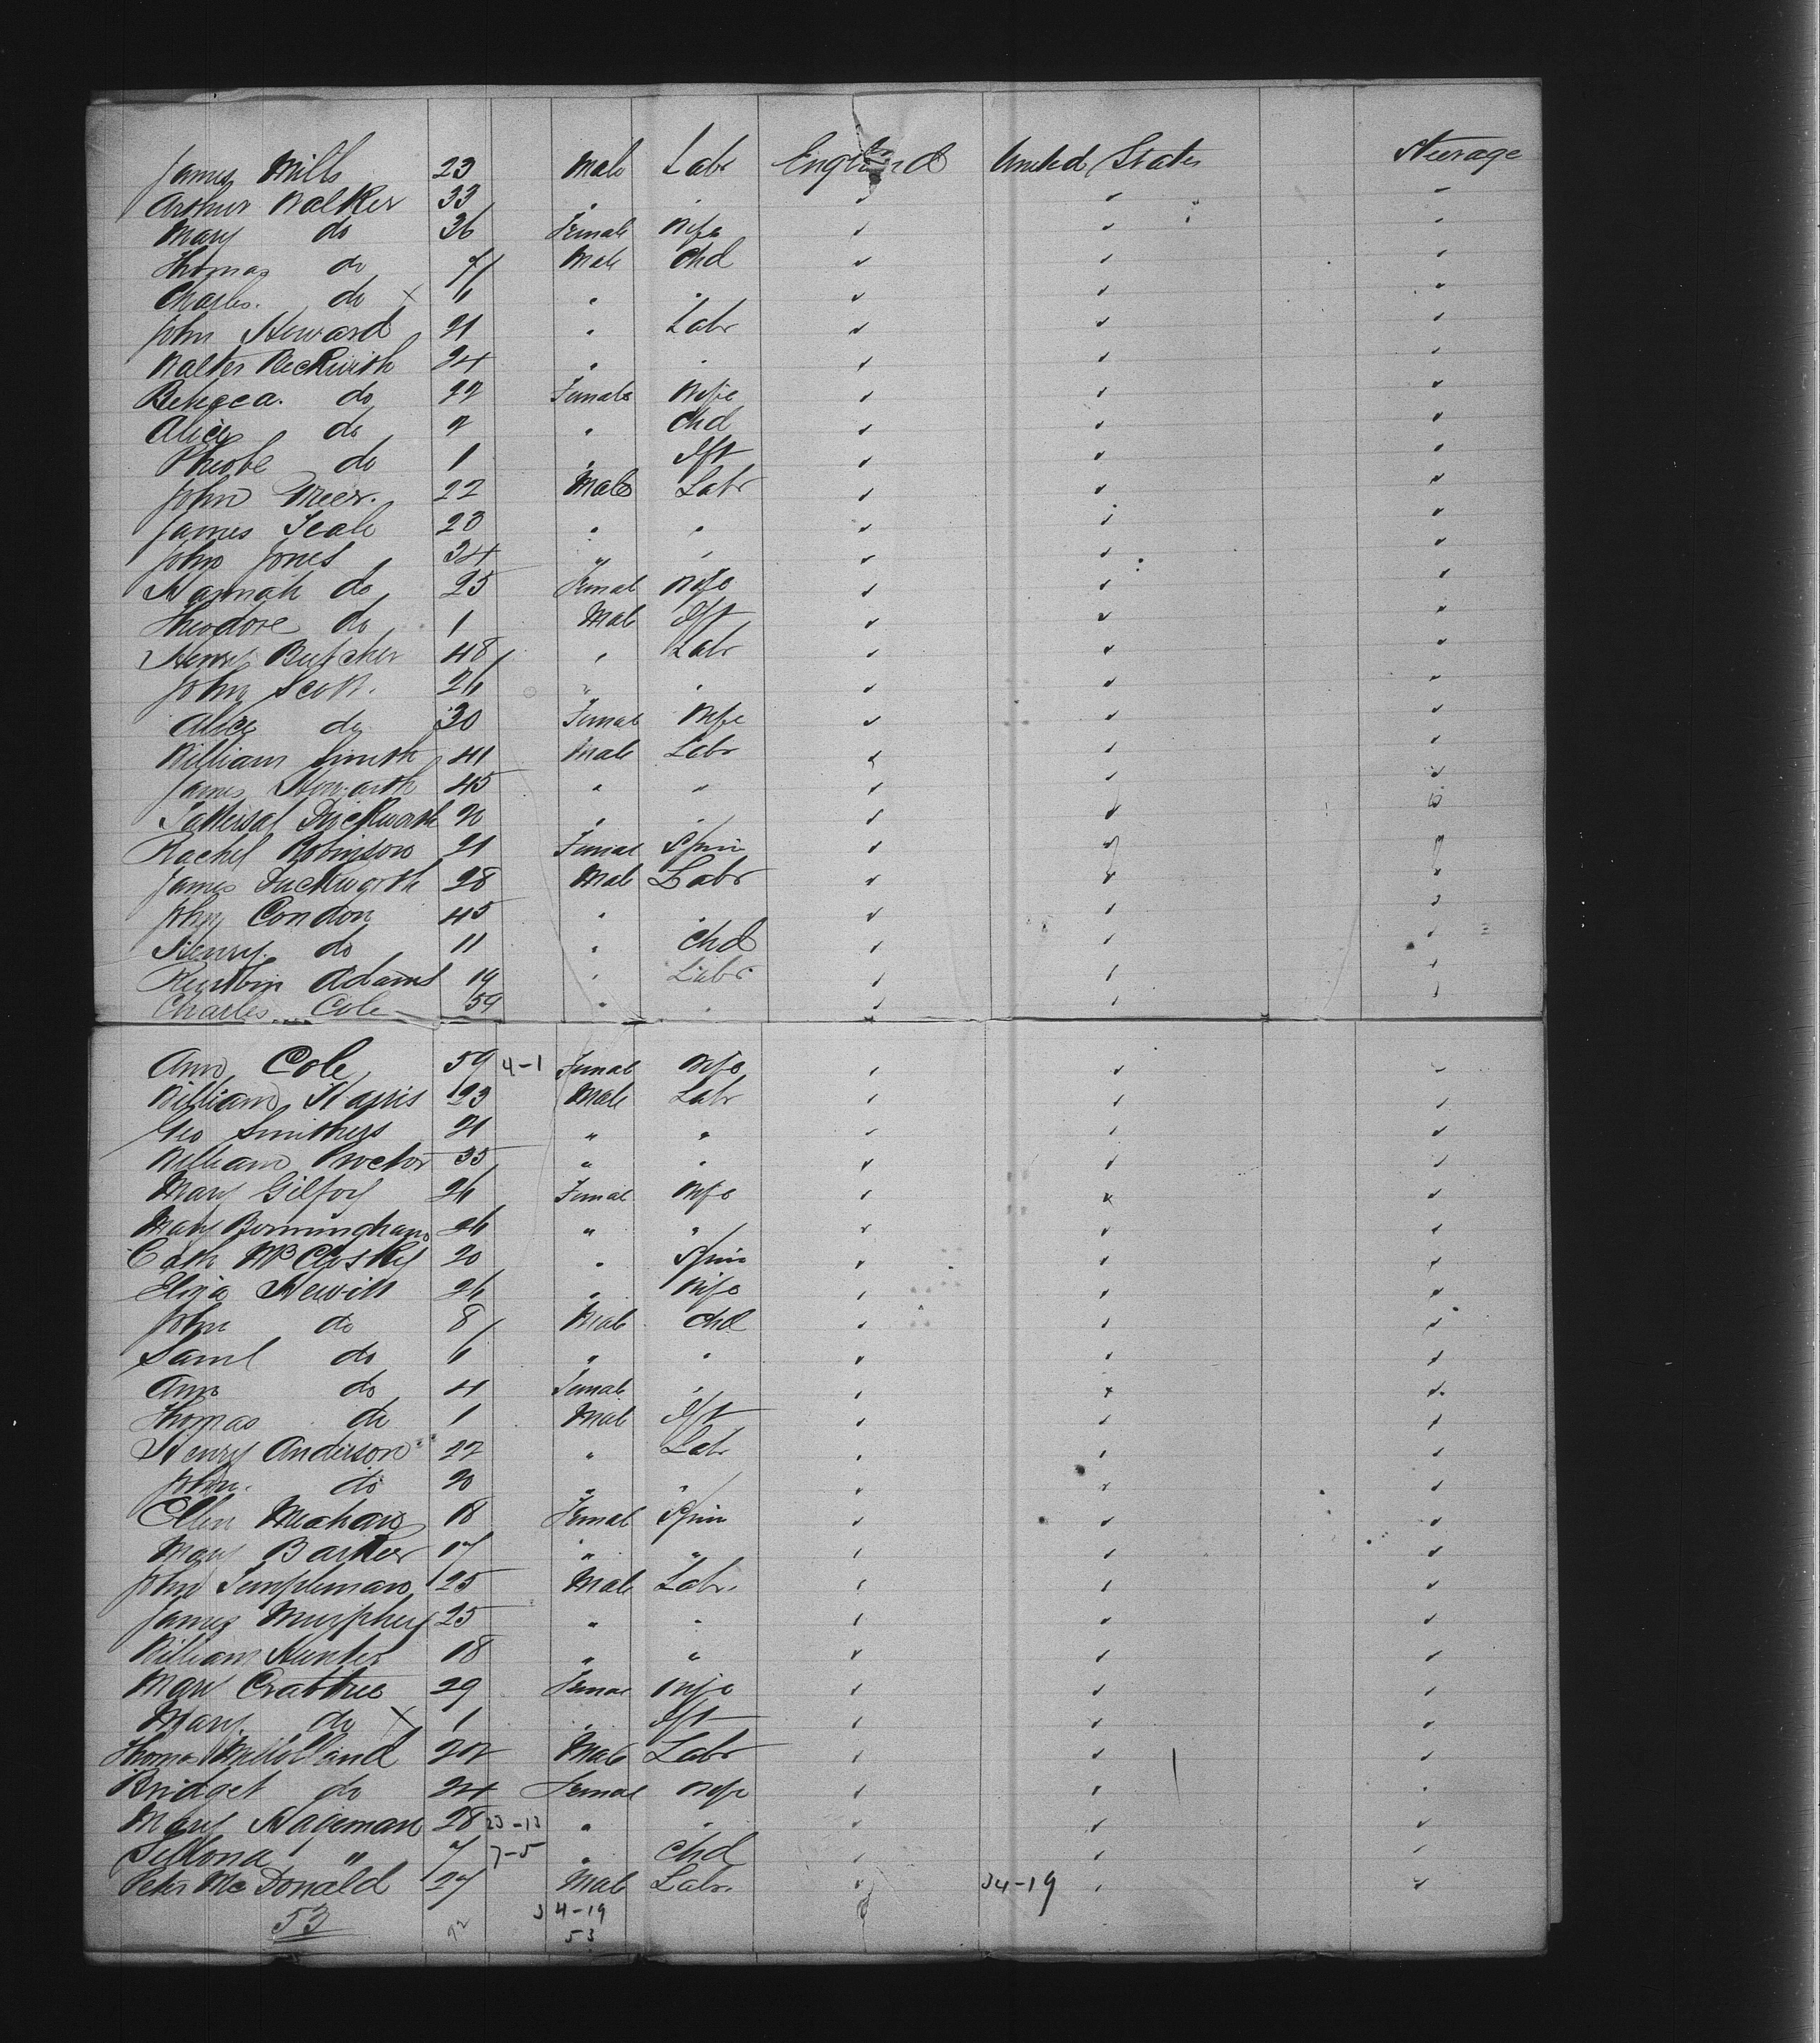 James Mills 23 Male Labr England United States Steerage
Arthur Walker 33 " " " " "
Mary do 36 Female Wife " " "
Thomas do 7 Male Chd " " "
Charles. do x 6 " " " " "
John Howard 21 " Labr " " "
Walter Beckwith 24 " " " " "
Rebecca. do 22 Female Wife " " "
Alice do 2 " Chd " " "
Phoebe do 1 " Ift " " "
John Greer. 22 Male Labr " " "
James Teale 23 " " " " "
John Jones 24 " " " " "
Hannah do 25 Femal Wife " " "
Theodore do 1 Male Ift " " "
Henry Butcher 48 " Labr " " "
John Scott. 26 " " " " "
Alice do 30 Femal Wife " " "
William Smith 41 Male Labr " " "
James Howarth 45 " " " " "
Tattersal Duckworth 20 " " " " "
Rachel Robinson 21 Femal Spin " " "
James Duckworth 28 Male Labr " " "
John Condon 45 " " " " "
Henry. do 11 " Chd " " "
Adams 19 " Labr. " " "
Charles Cole 59 " " " " "
Ann Cole 59 4-1 Femal Wife " " "
William Harris 23 Male Labr " " "
Geo Smithers 21 " " " " "
William Proctor 35 " " " " "
Mary Gilfoy 26 Femal Wife " " "
Mary Bermingham 26 " " " " "
Cath McClosky 20 " Spin " " "
Eliza Hewitt 26 " Wife " " "
John do 8 Male Chd " " "
Saml do 6 " " " " "
Ann do 4 Femal " " " "
Thomas do 1 Male Ift " " "
Henry Anderson 22 " Labr " " "
John. do 20 " " " " "
Ellen Meehan 18 Femal Spin " " "
Mary Barker 17 " " " " "
John Templeman 25 Male Labr. " " "
James Murphey 25 " " " " "
William Hunter 18 " " " " "
Mary Crabtree 29 Femal Wife " " "
Mary. do x 1 " Ift " " "
Thomas 22 Male Labr " " "
Bridget do 24 Femal Wife " " "
Mary Hageman 28 23-13 " " " " "
" 7 7-5 " Chd " " "
Peter McDonald 27 Male Labr. " 34-19 " "
53 34-19
53